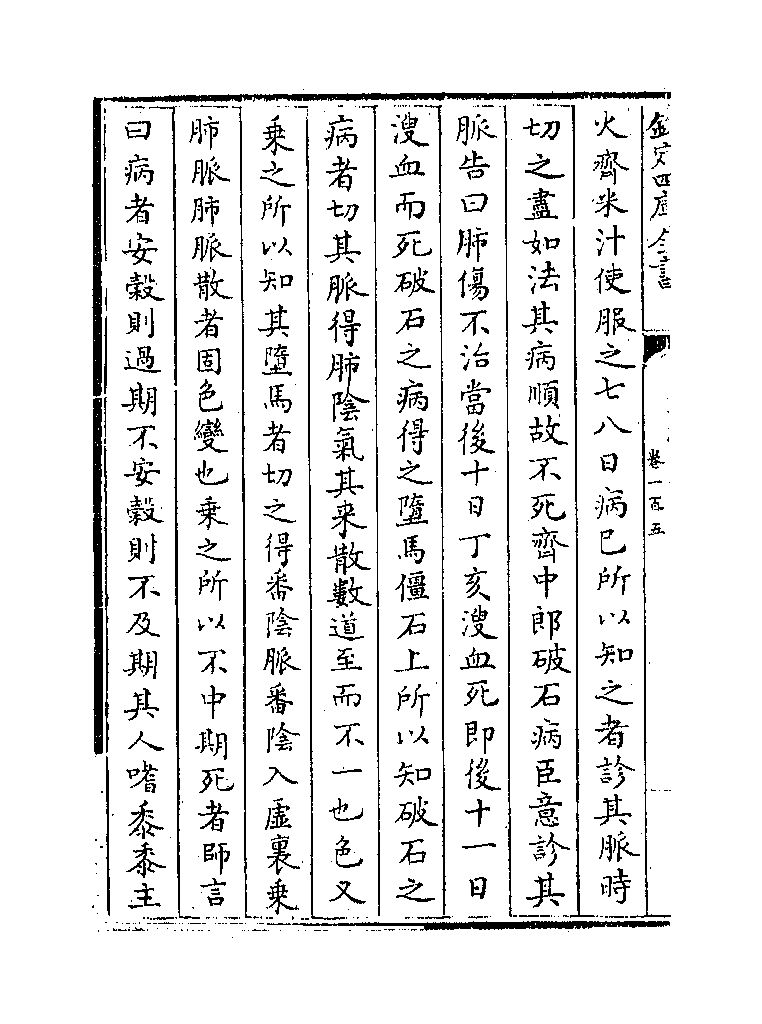 欽定四庫全書
卷一百五
火齊米汁使服之七八日病已所以知之者診其脈時
切之盡如法其病順故不死齊中郎破石病臣意診其
脈告曰肺傷不治當後十日丁亥溲血死即後十一日
溲血而死破石之病得之墮馬僵石上所以知破石之
病者切其脈得肺陰氣其来散數道至而不一也色又
乗之所以知其墮馬者切之得番陰脈番陰入虛裏乗
肺脈肺脈散者固色變也乗之所以不中期死者師言
曰病者安榖則過期不安榖則不及期其人嗜黍黍主